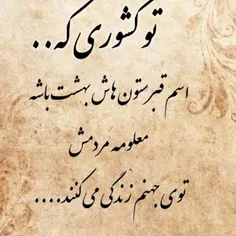 تو کشوری که..
اسم قبرستون هاش بهشت باشه
معلومه مردمش
توی جهنم زندگی می کنند....